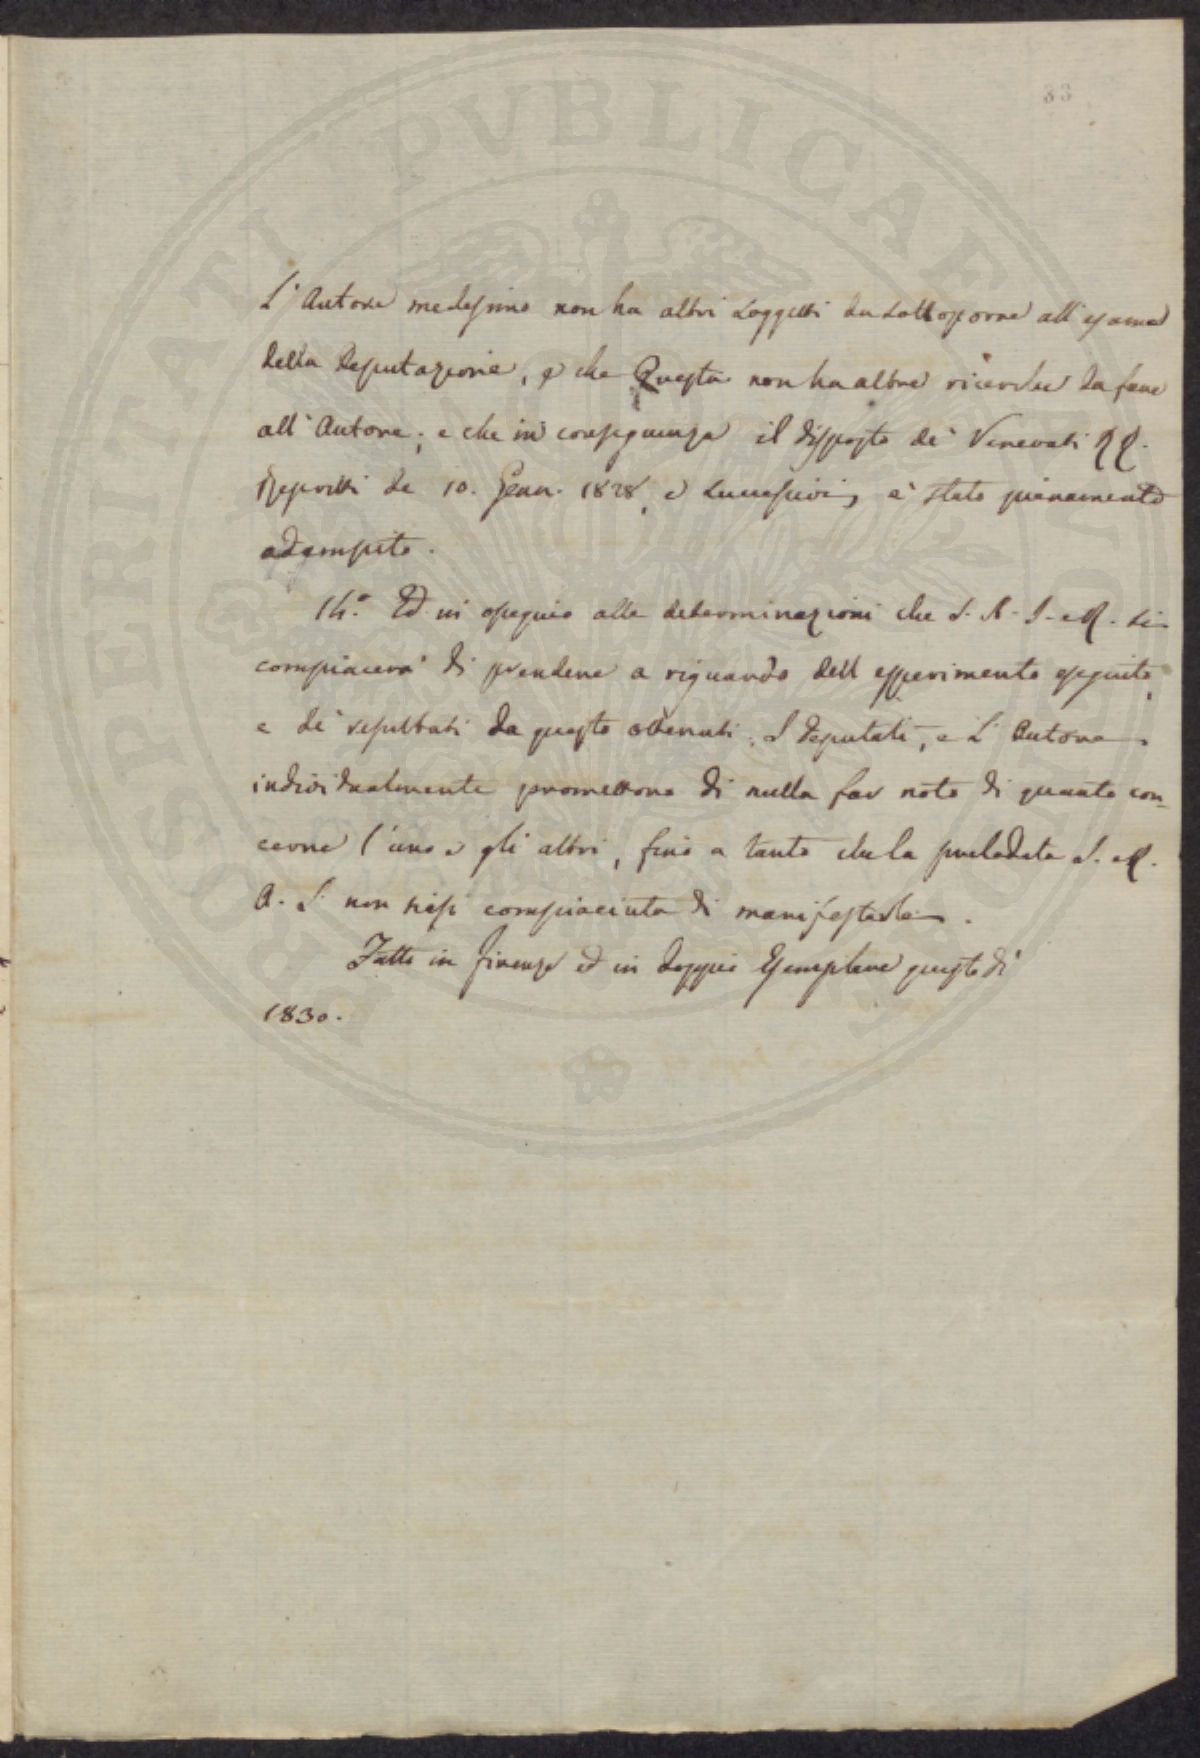 83
L'Autore medesimo non ha altri soggetti da sottoporre all'esame
della Deputazione, e che Questa non ha altre ricerche da fare
all'Autore; e che in conseguenza il disposto de' Venerati RR.
Rescritti de 10. Genn. 1828, e successivi, è stato pienamente
adempito.
14.° Ed in ossequio alle determinazioni che S. A. I. e R. si
compiacerà di prendere a riguardo dell esperimento eseguito,
e de' resultati da questo ottenuti; I Deputati, e L'Autore
individualmente promettono di nulla far noto di quanto con-
cerne l'uno e gli altri, fino a tanto che la prelodata I. e R.
A. S. non siasi compiaciuta di manifestarle.
Fatto in Firenze ed in doppio Esemplare questo dì
1830.
SPERITATI PVBLICAE